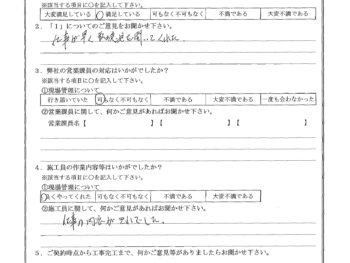 ※該当する項目に○を記入して下さい。
大変満足している 満足している 可もなく不可もなく 不満である 大変不満である
2．「1」についてのご意見をお聞かせ下さい。
仕事が早く
3．弊社の営業課員の対応はいかがでしたか？
※該当する項目に○を記入して下さい。
①現場管理について
行き届いていた 可もなく不可もなく 不満である 大変不満である 一度も会わなかった
②営業課員に関して、何かご意見があればお聞かせ下さい。
営業課員名【 】【 】【 】
4．施工員の作業内容等はいかがでしたか？
※該当する項目に○を記入して下さい。
①現場管理について
良くやってくれた 可もなく不可もなく 不満である 大変不満である
②施工員に関して、何かご意見があればお聞かせ下さい。
仕事の内容が でした。
5．ご契約時点から工事完工まで、何かご意見等がありましたらお聞かせ下さい。